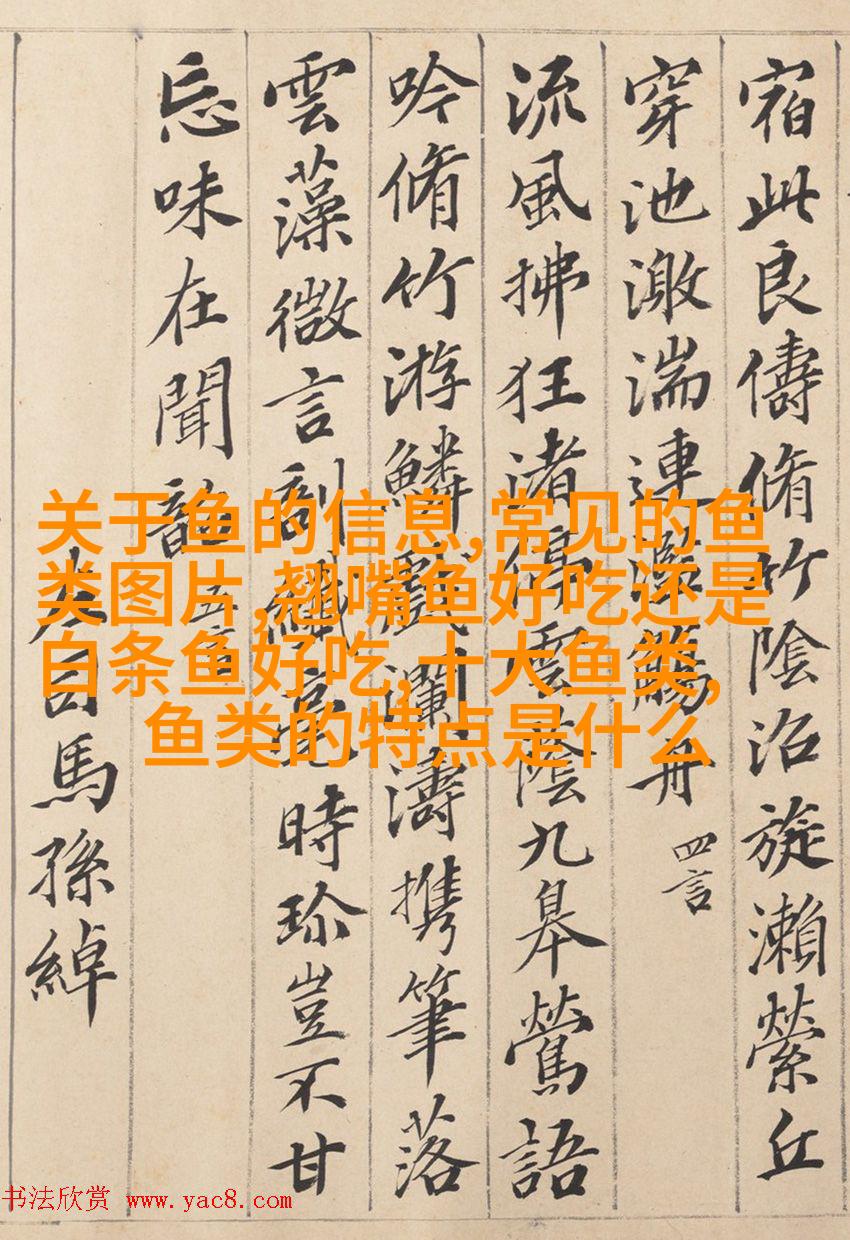 宿此良儔脩竹陰沼旋瀨縈丘
穿池激湍連濫觴舟 四言
流風拂枉渚停雲蔭九皋鶯語
吟脩竹游鱗戲瀾濤携筆落
雲藻微言剖纖毫時珎豈不甘
忘味在聞韶 五言
左司馬孫綽
关于鱼的信息,常见的鱼
类图片,翘嘴鱼好吃还是
白条鱼好吃,十大鱼类,
鱼类的特点是什么
书法欣赏 www.yac8.com